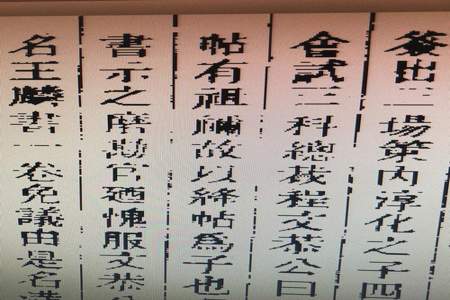 簽出二三場策內淳化之子四
會試三科總裁程文恭公曰
帖有祖禰故以絳帖爲子也
書示之磨勘官迺愧服文恭公
名王麟書一卷免議由是名滿